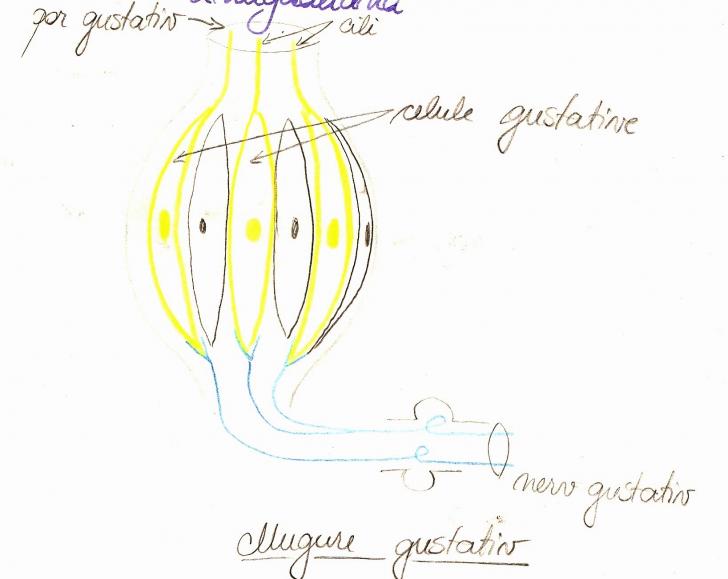 por gustativ
cili
celule gustative
nerv gustativ
Mugure gustativ